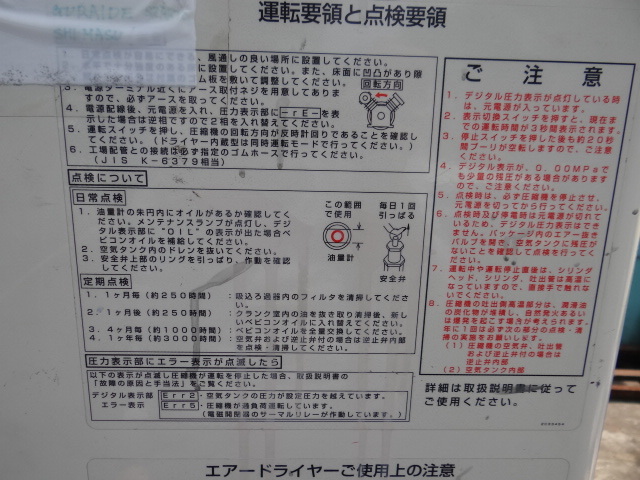 運転要領と点検要領
風通しの良い場所に設置してください。
に設置してください。また、床面に凹凸があり隙
ム板を敷いて調整してください。
3．電源ターミナル近くにアース取付ネジを用意してありま
すので、必ずアースを取ってください。
回転方向
4．電源配線後、元電源を入れ、圧力表示部に-rE-を表
示した場合は逆相ですので2相を入れ替えてください。
5．運転スイッチを押し、圧縮機の回転方向が反時計回りであることを確認し
てください。（ドライヤー内蔵型は同時運転モードで行ってください。）
6．工場配管との接続は必ず指定のゴムホースで行ってください。
（JIS K-6379相当）
点検について
日常点検
1．油量計の朱円内にオイルがあるか確認してくだ
さい。メンテナンスランプが点灯し、デジ
タル表示部に"OIL"の表示が出た場合ベ
ビコンオイルを補給してください。
2．空気タンク内のドレンを抜いてください。
3．安全弁上部のリングを引っぱり、作動を確認
してください。
この範囲
で使用
油量計
毎日1回
引っぱる
安全弁
定期点検
1．1ヶ月毎（約250時間）：吸込ろ過器内のフィルタを清掃してくださ
い。
2．1ヶ月後（約250時間）：クランク室内の油を抜き取り清掃後、新し
いベビコンオイルに入れ替えてください。
3．4ヶ月毎（約1000時間）：ベビコンオイルを全量交換してください。
4．1ヶ年毎（約3000時間）：空気弁および逆止弁付の場合は逆止弁内部
を点検・清掃してください。
圧力表示部にエラー表示が点滅したら
以下の表示が点滅し圧縮機が運転を停止した場合、取扱説明書の
「故障の原因と手当法」をご覧ください。
デジタル表示部 Err2・空気タンクの圧力が設定圧力を越えています。
エラー表示 Err5・圧縮機が過負荷運転しています。
（電磁開閉器のサーマルリレーが作動しています。）
ご注意
1．デジタル圧力表示が点灯している時
は、元電源が入っています。
2．表示切換スイッチを押すと、現在ま
での運転時間が3秒間表示されます。
3．停止スイッチを押した後も約20秒
間プーリが空転しますので、ご注意
ください。
4．デジタル表示が、0.00MPaで
も少量の残圧がある場合があります
ので、ご注意してください。
5．点検時は、必ず圧縮機を停止させ、
元電源を切ってから行ってください。
6．点検時及び停電時は元電源が切れて
いるため、デジタル圧力表示はでき
ません。パッケージ内のエアー抜き
バルブを開き、空気タンクに残圧が
ないことを確認して点検を行ってく
ださい。
7．運転中や運転停止直後は、シリンダ
ヘッド、シリンダ、吐出管は高温に
なっていますので、直接手で触れな
いでください。
8．圧縮機の吐出側高温部分は、潤滑油
の炭化物が堆積し、自然発火あるい
は爆発を起こす場合が考えられます。
年に1回は必ず次の部分の点検・清
掃の実施をお願いします。
（1）圧縮機の空気弁、吐出管
および逆止弁付の場合は
逆止弁内部
（2）空気タンク内部
詳細は取扱説明書に従って
ご使用ください。
エアードライヤーご使用上の注意